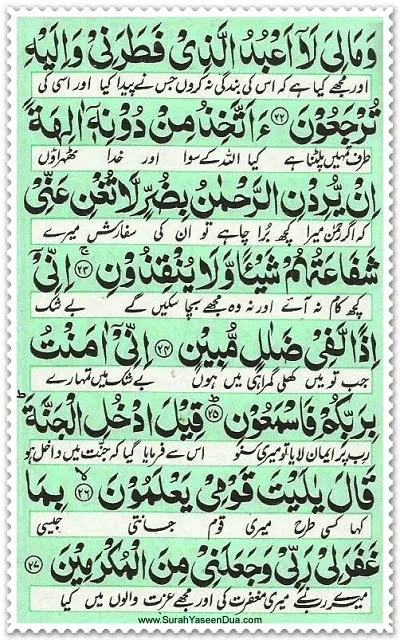 وَمَا لِیَ لَاۤ اَعْبُدُ الَّذِیْ فَطَرَنِیْ وَاِلَیْهِ
اور مجھے کیا ہے کہ اس کی بندگی نہ کروں جس نے پیدا کیا اور اسی کی
تُرْجَعُوْنَ ﴿۲۲﴾ ءَاَتَّخِذُ مِنْ دُوْنِهٖۤ اٰلِهَةً
طرف تمہیں پلٹنا ہے کیا اللہ کے سوا اور خدا ٹھہراؤں
اِنْ یُّرِدْنِ الرَّحْمٰنُ بِضُرٍّ لَّا تُغْنِ عَنِّیْ
کہ اگر رحمٰن میرا کچھ بُرا چاہے تو ان کی سفارش میرے
شَفَاعَتُهُمْ شَیْئًا وَّلَا یُنْقِذُوْنِ ۚ﴿۲۳﴾ اِنِّیْۤ
کچھ کام نہ آئے اور نہ وہ مجھے بچا سکیں گے بے شک
اِذًا لَّفِیْ ضَلٰلٍ مُّبِیْنٍ ﴿۲۴﴾ اِنِّیْۤ اٰمَنْتُ
جب تو میں کھلی گمراہی میں ہوں بے شک میں تمہارے
بِرَبِّكُمْ فَاسْمَعُوْنِ ؕ﴿۲۵﴾ قِیْلَ ادْخُلِ الْجَنَّةَ ؕ
رب پر ایمان لایا تو میری سنو اس سے فرمایا گیا کہ جنّت میں داخل ہو
قَالَ یٰلَیْتَ قَوْمِیْ یَعْلَمُوْنَ ۙ﴿۲۶﴾ بِمَا
کہا کسی طرح میری قوم جانتی جیسی
غَفَرَ لِیْ رَبِّیْ وَجَعَلَنِیْ مِنَ الْمُكْرَمِیْنَ ﴿۲۷﴾
میرے رب نے میری مغفرت کی اور مجھے عزت والوں میں کیا
www.SurahYaseenDua.com